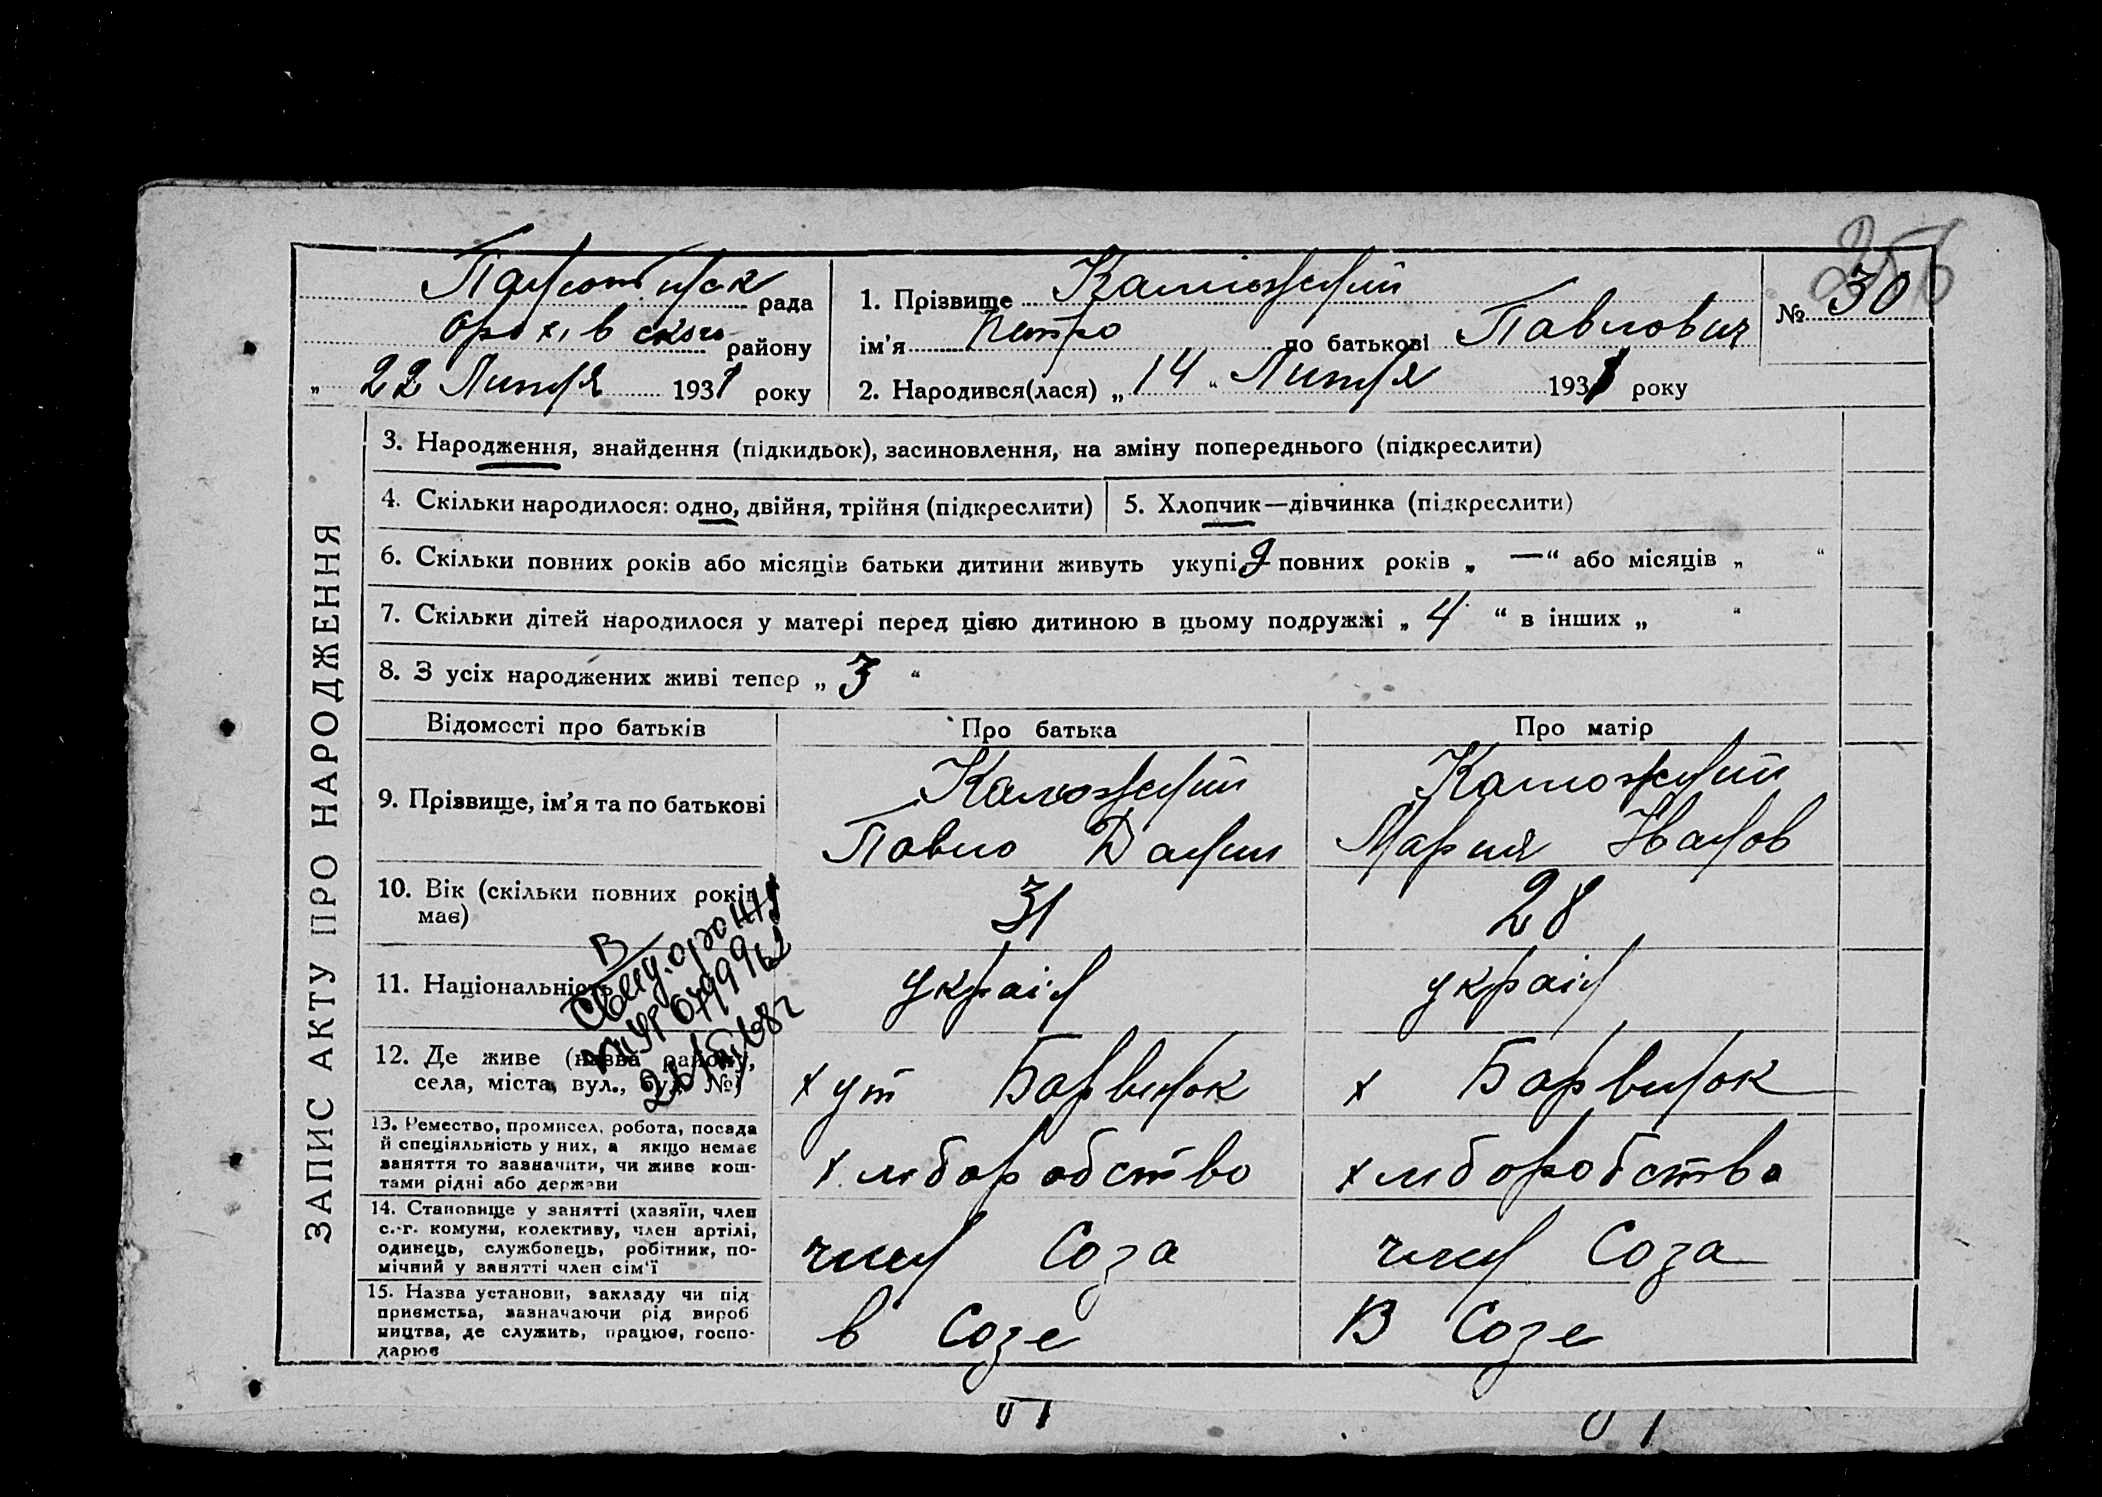 рада
Оріхівского району
„ 22 Липня 1931 року
1. Прізвище Калюжний
ім'я Петро по батькові Павлович
2. Народився(лася) „ 14 “ Липня 1931 року
№ 30
ЗАПИС АКТУ ПРО НАРОДЖЕННЯ
3. Народження, знайдення (підкидьок), засиновлення, на зміну попереднього (підкреслити)
4. Скільки народилося: одно, двійня, трійня (підкреслити)
5. Хлопчик—дівчинка (підкреслити)
6. Скільки повних років або місяців батьки дитини живуть укупі 9 повних років „ — “ або місяців „ “
7. Скільки дітей народилося у матері перед цією дитиною в цьому подружжі „ 4 “ в інших „ “
8. З усіх народжених живі тепер „ 3 “
Відомості про батьків
Про батька
Про матір
9. Прізвище, ім'я та по батькові
Калюжний
Павло Данил
Калюжний
Мария Иванов
10. Вік (скільки повних років має)
31
28
11. Національність
україн
україн
12. Де живе (назва району,
села, міста, вул., буд. №)
хут Барвинок
х Барвинок
13. Ремество, промисел, робота, посада
й спеціяльність у них, а якщо немає
заняття то зазначити, чи живе кош-
тами рідні або держави
хліборобство
хліборобство
14. Становище у занятті (хазяїн, член
с.-г. комуни, колективу, член артілі,
одинець, службовець, робітник, по-
мічний у занятті член сім'ї
член Соза
член Соза
15. Назва установи, закладу чи під
приємства, зазначаючи рід вироб
ництва, де служить, працює, госпо-
дарює
в Созе
В Созе